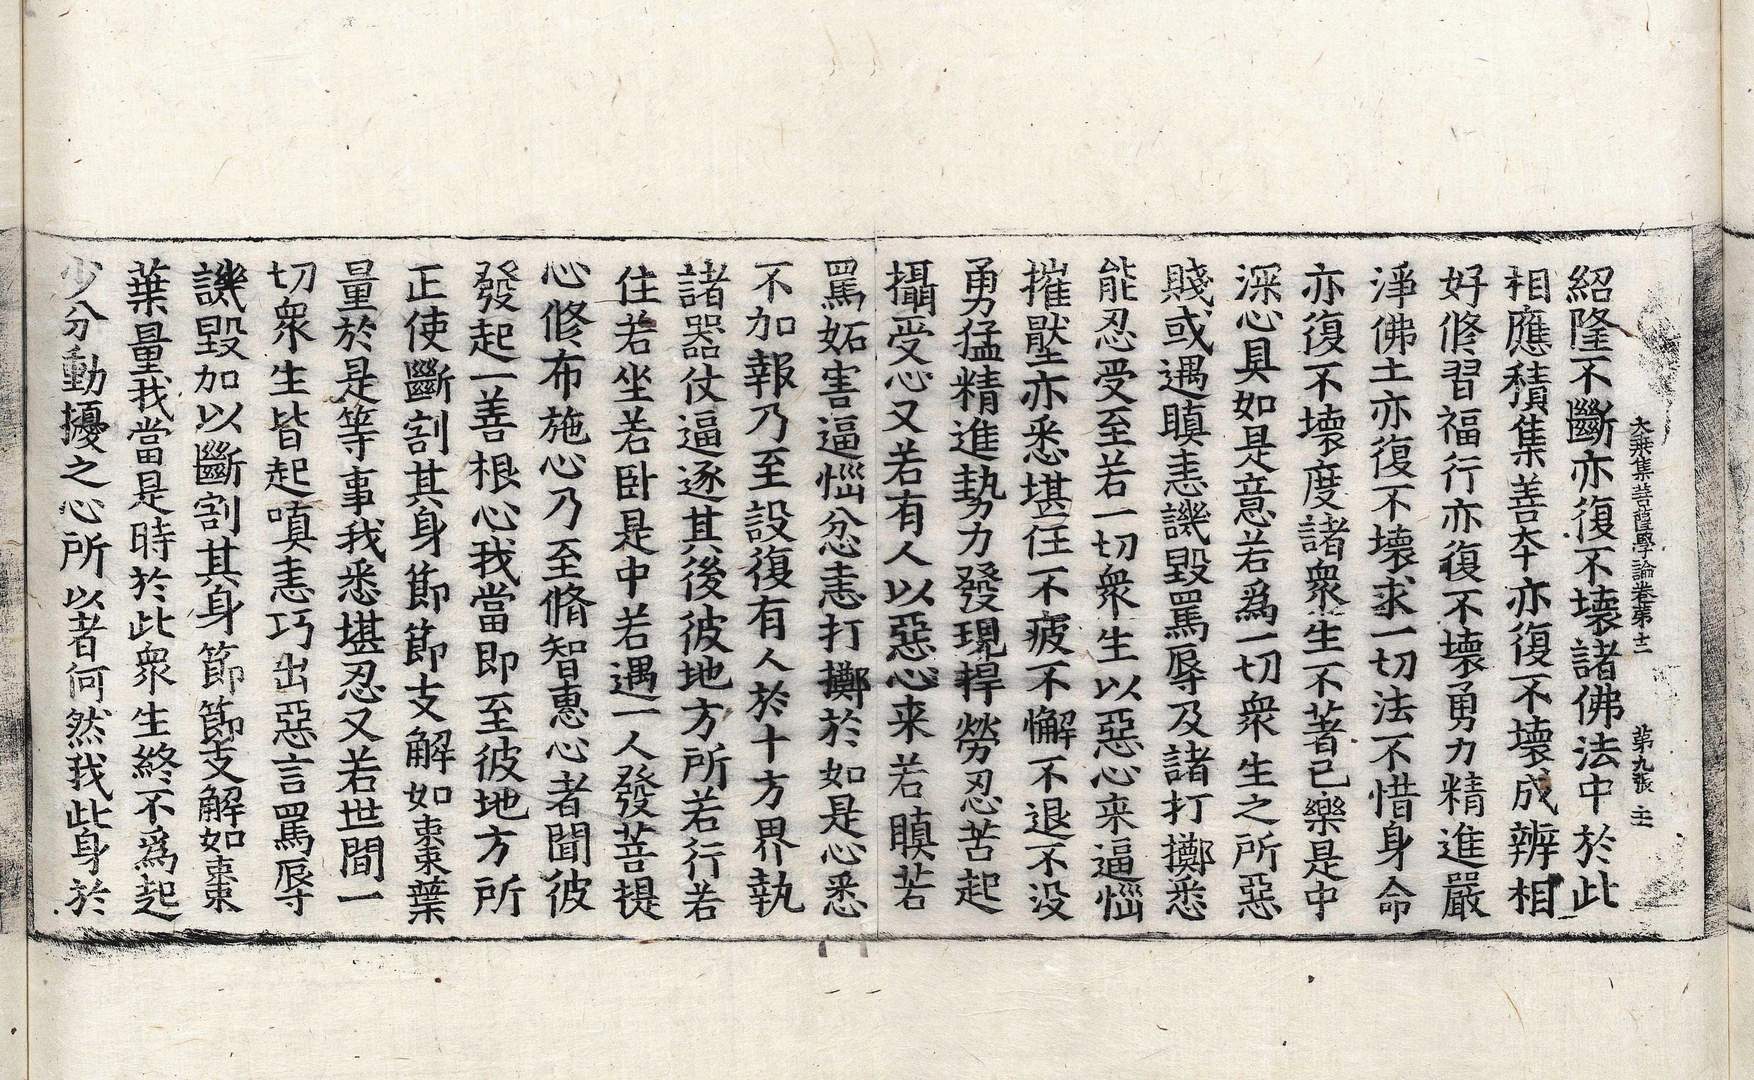 大乘集菩薩學論卷第十二 第九張 主
紹隆不斷亦復不壞諸佛法中於此
相應積集善本亦復不壞成辨相
好修習福行亦復不壞勇力精進嚴
淨佛土亦復不壞求一切法不惜身命
亦復不壞度諸衆生不著己樂是中
深心具如是意若爲一切衆生之所惡
賤或遇瞋恚譏毀罵辱及諸打擲悉
能忍受至若一切衆生以惡心来逼惱
摧壓亦悉堪任不疲不懈不退不没
勇猛精進勢力發現捍勞忍苦起
攝受心又若有人以惡心来若瞋若
罵妬害逼惱忿恚打擲於如是心悉
不加報乃至設復有人於十方界執
諸器仗逼逐其後彼地方所若行若
住若坐若卧是中若遇一人發菩提
心修布施心乃至脩智惠心者聞彼
發起一善根心我當即至彼地方所
正使斷割其身節節支解如棗葉
量於是等事我悉堪忍又若世間一
切衆生皆起嗔恚巧出惡言罵辱
譏毀加以斷割其身節節支解如棗
葉量我當是時於此衆生終不爲起
少分動擾之心所以者何然我此身於